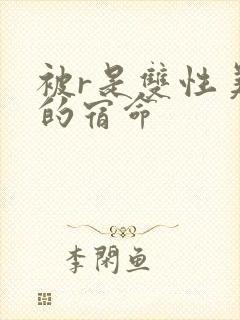 被r是雙性美
的宿命
李閑魚